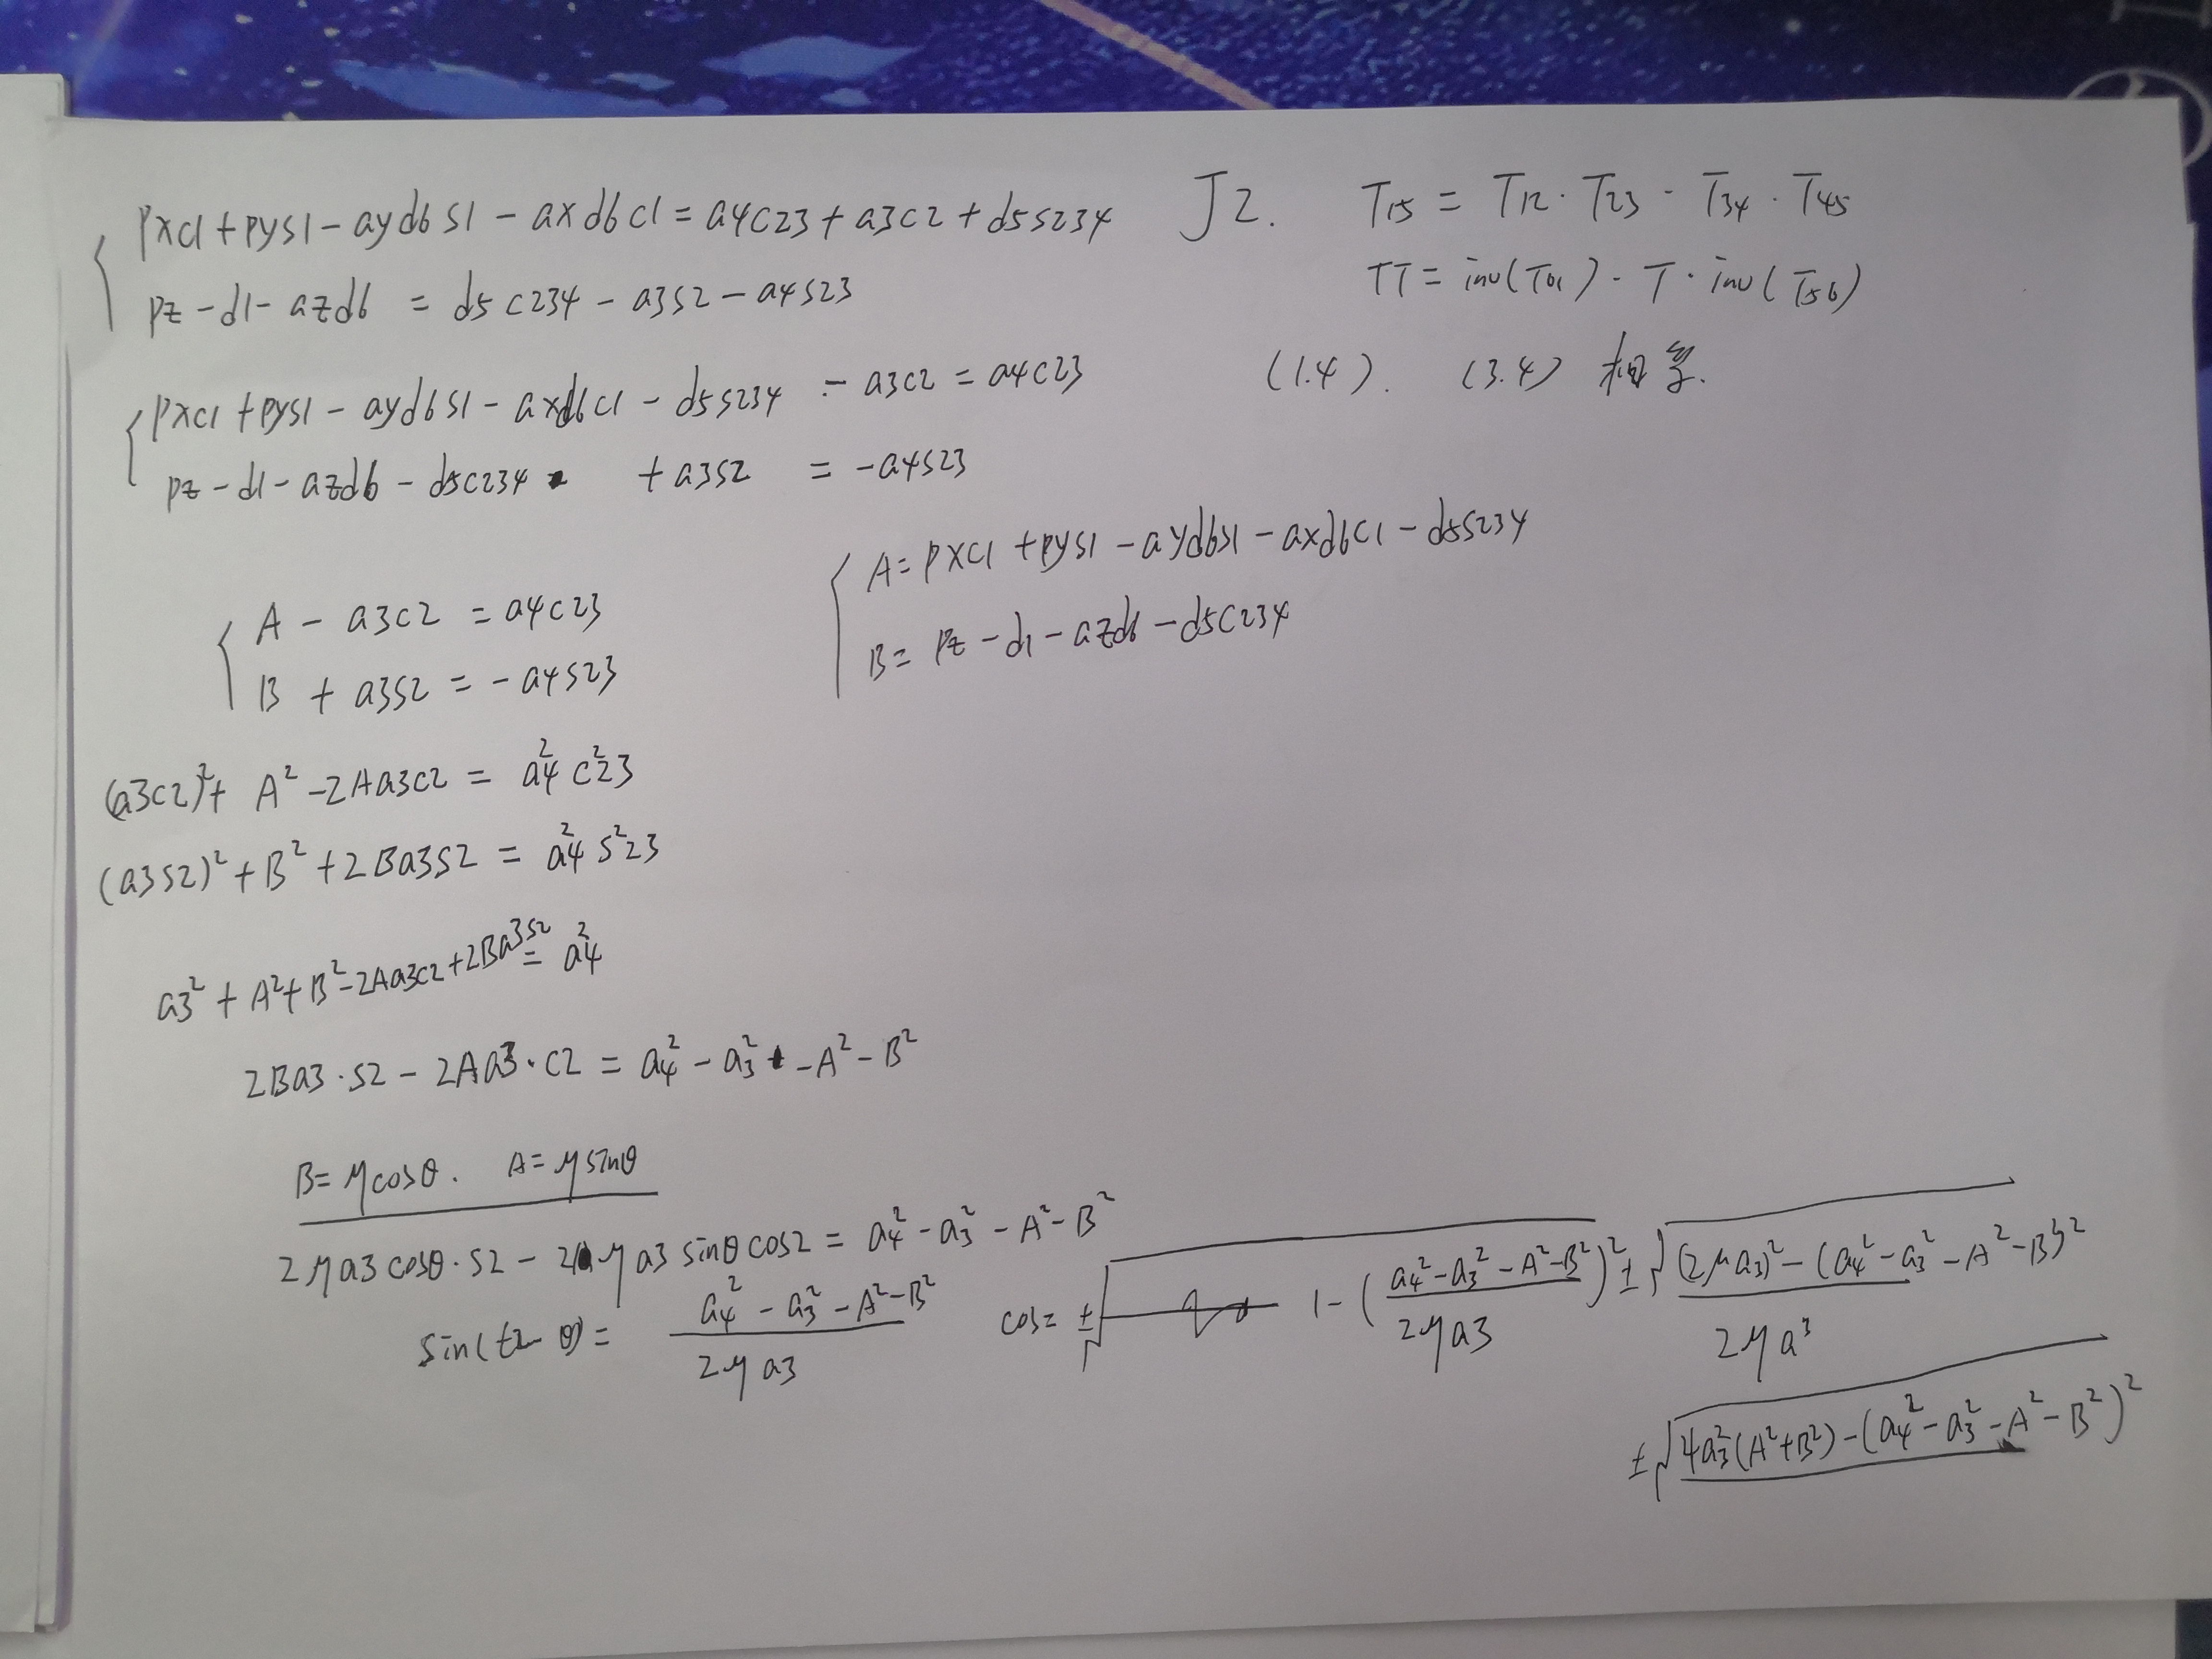 pxc1+pys1-ayd6s1-axd6c1=a4c23+a3c2+d5s234
pz-d1-azd6 = d5c234-a3s2-a4s23
J2.
T15 = T12·T23·T34·T45
TT=inv(T01)·T·inv(T56)
(1.4). (3.4) 相等.
pxc1+pys1-ayd6s1-axd6c1-d5s234-a3c2=a4c23
pz-d1-azd6-d5c234 +a3s2 = -a4s23
A=pxc1+pys1-ayd6s1-axd6c1-d5s234
B=pz-d1-azd6-d5c234
A-a3c2 = a4c23
B+a3s2 = -a4s23
(a3c2)²+A²-2Aa3c2 = a4²c²23
(a3s2)²+B²+2Ba3s2 = a4²s²23
a3²+A²+B²-2Aa3c2+2Ba3s2 = a4²
2Ba3·s2-2Aa3·c2 = a4²-a3²-A²-B²
B=μcosθ. A=μsinθ
2μa3cosθ·s2-2μa3sinθcos2 = a4²-a3²-A²-B²
sin(t2-θ)= a4²-a3²-A²-B² / 2μa3
cos= ±√ 1-(a4²-a3²-A²-B² / 2μa3)² ±√(2μa3)²-(a4²-a3²-A²-B²)² / 2μa3
±√4a3²(A²+B²)-(a4²-a3²-A²-B²)²